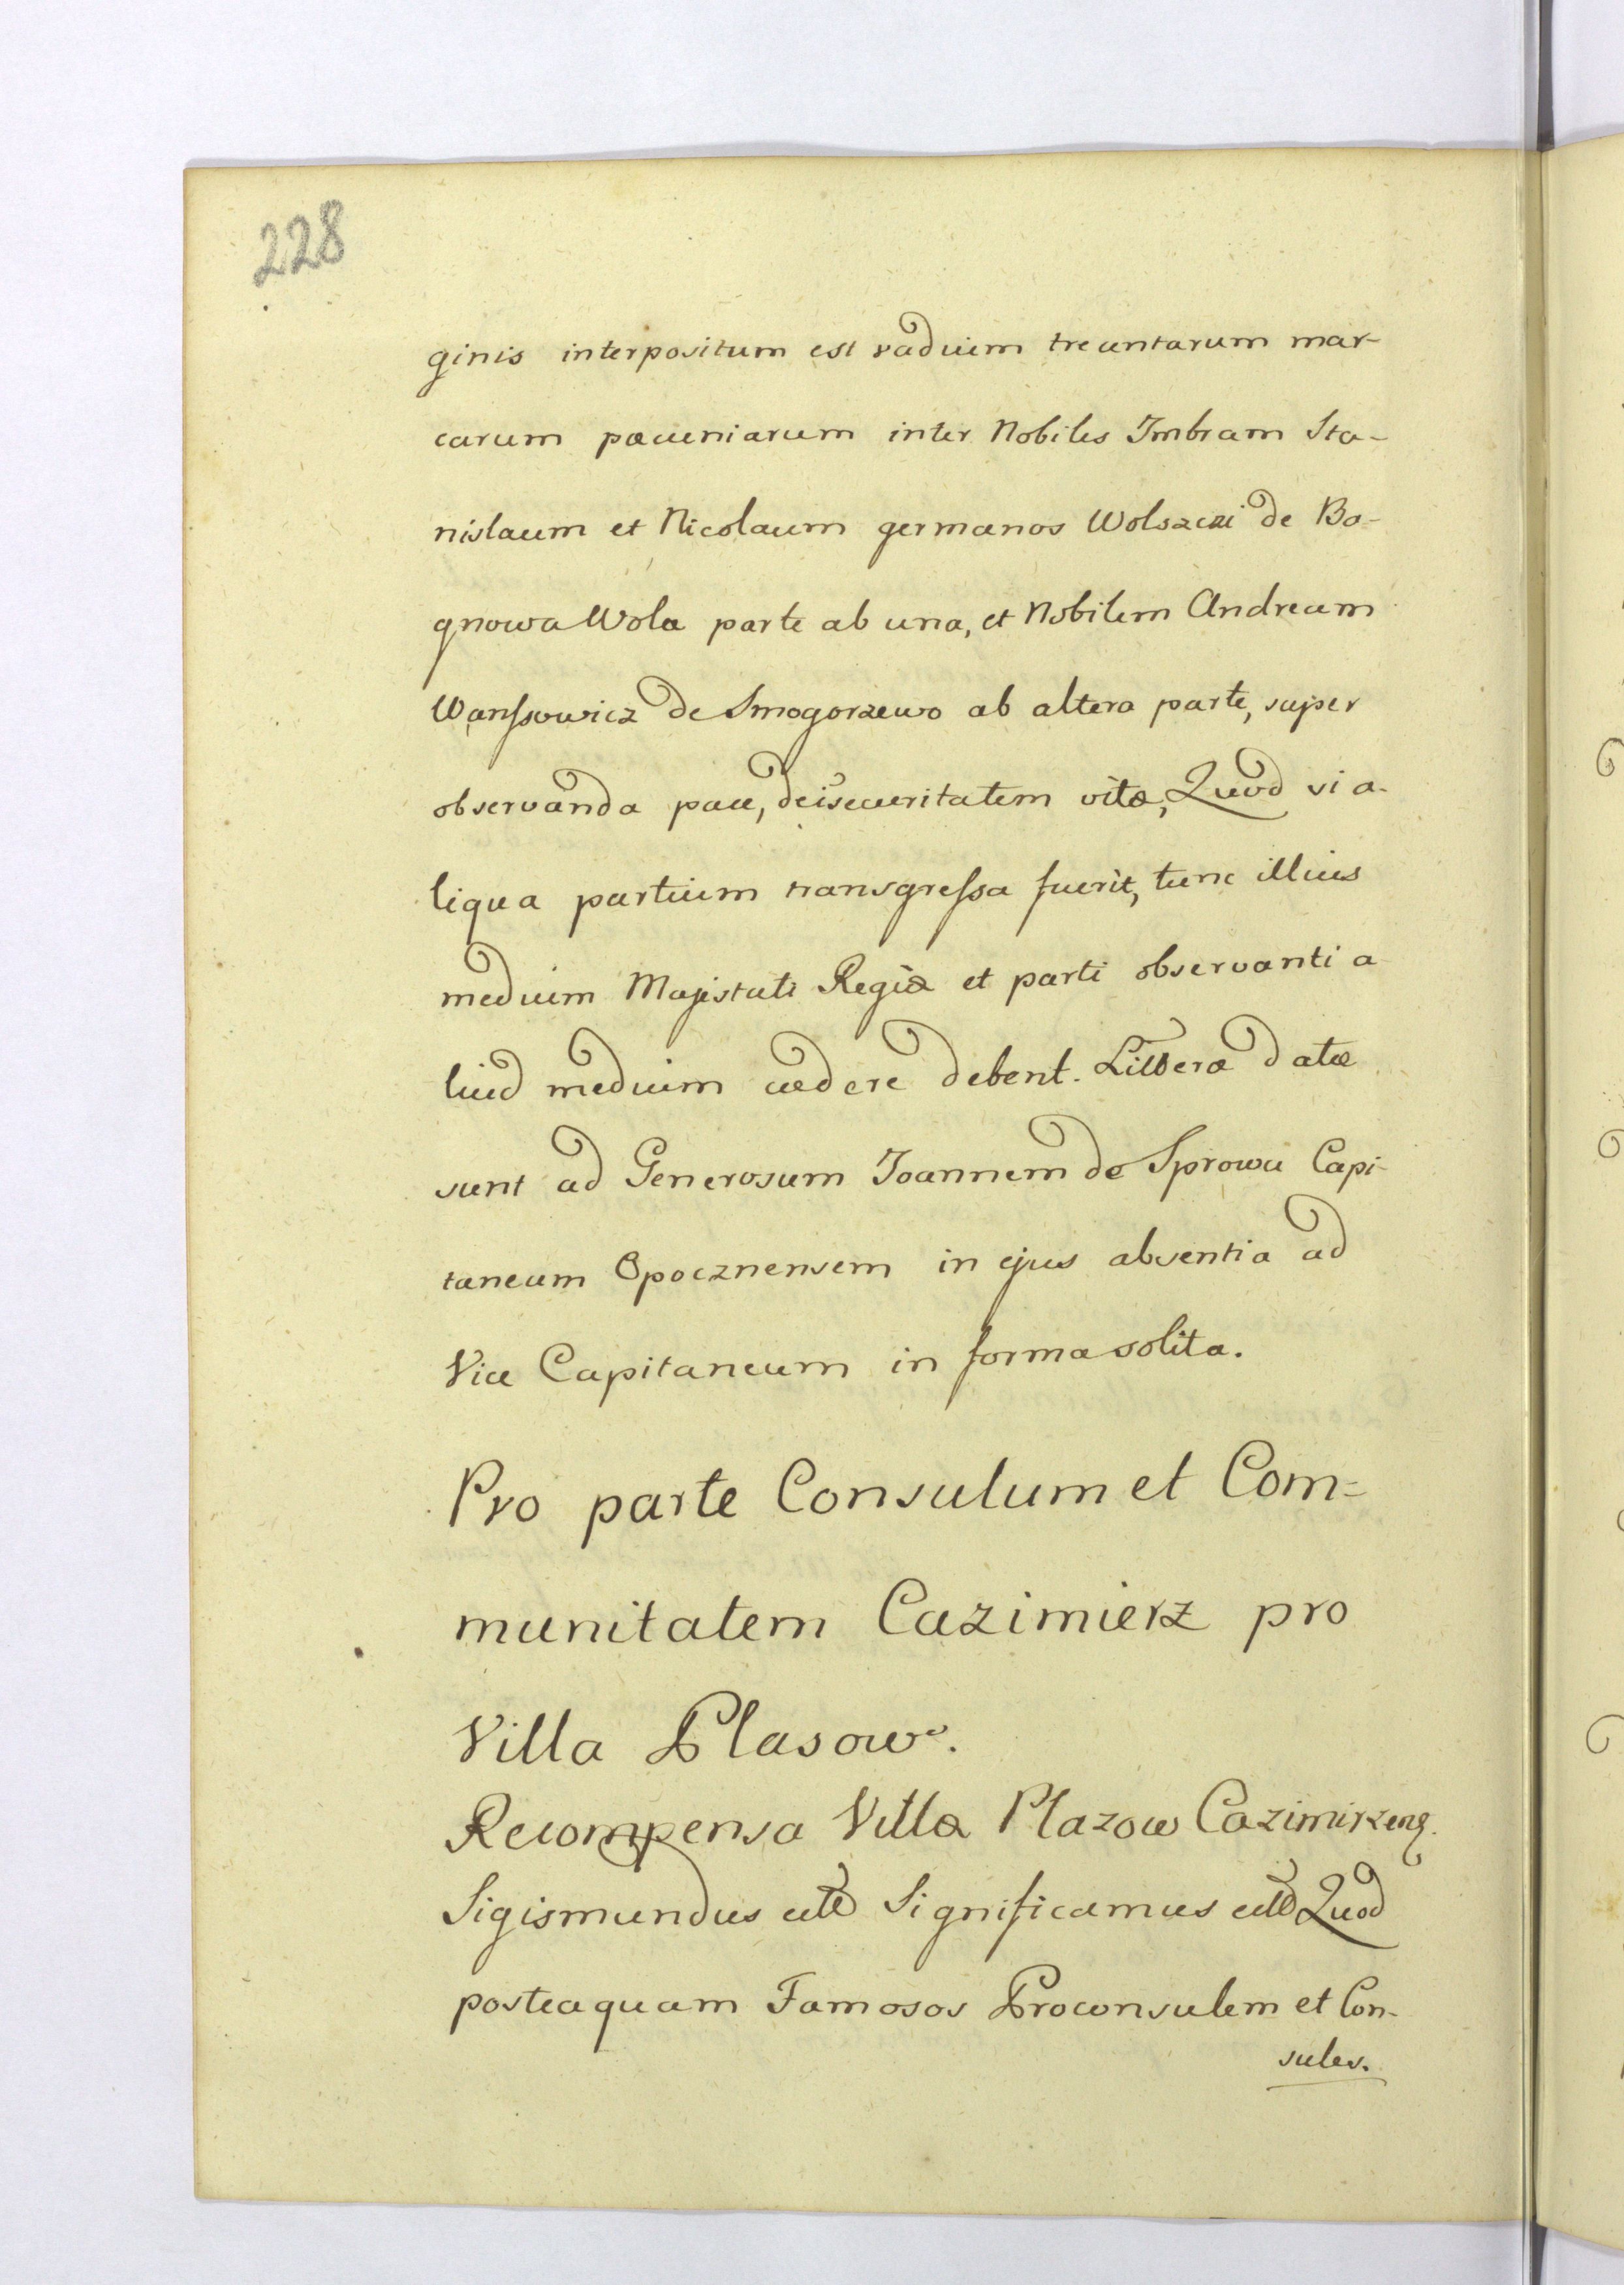 228
ginis interpositum est vadium trecentarum mar-
carum pæcuniarum inter Nobiles Imbram Sta-
nislaum et Nicolaum germanos Wolszczi de Bo-
gnowa Wola parte ab una, et Nobilem Andream
Wanssowicz de Smogorzewo ab altera parte, super
observanda pace, de securitatem vitæ, Quod si a-
liqua partium transgressa fuerit, tunc illius
medium Majestati Regiæ et parti observanti a-
liud medium cedere debent. Litteræ datæ
sunt ad Generosum Joannem de Sprowa Capi-
taneum Opocznensem in ejus absentia ad
Vice Capitaneum in forma solita.
Pro parte Consulum et Com=
munitatem Cazimierz pro
Villa Plasow.
Recompensa Villæ Plazow Cazimirzeng.
Sigismundus etc Significamus etc Quod
posteaquam Famosos Proconsulem et Con-
sules.